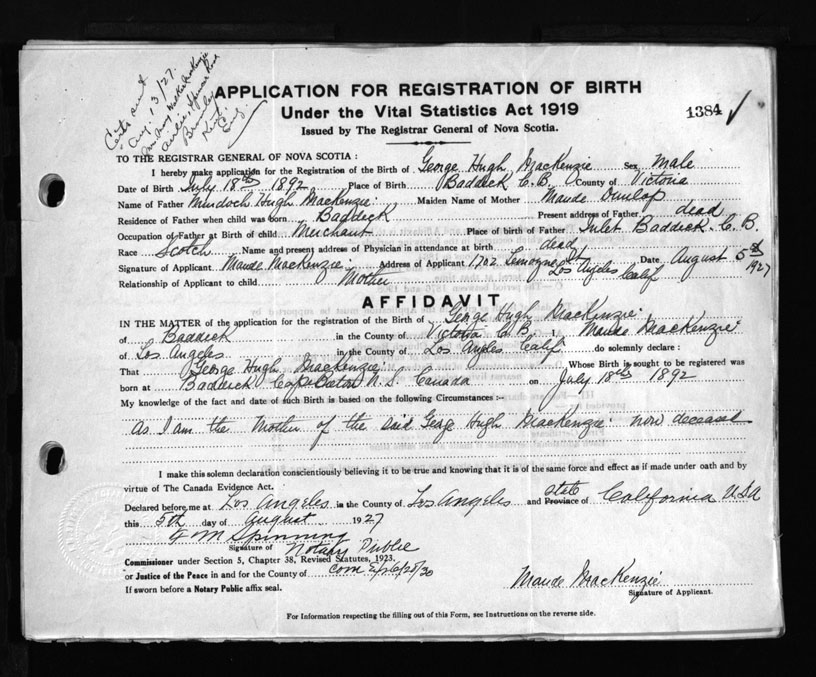 Certs sent
Aug 13/27.
Eng.
APPLICATION FOR REGISTRATION OF BIRTH
Under the Vital Statistics Act 1919
Issued by The Registrar General of Nova Scotia.
1384 ✓
TO THE REGISTRAR GENERAL OF NOVA SCOTIA :
I hereby make application for the Registration of the Birth of George Hugh MacKenzie Sex Male
Date of Birth July 18th 1892 Place of Birth Baddeck C.B. County of Victoria
Name of Father Murdoch Hugh MacKenzie: Maiden Name of Mother Maude Dunlop
Residence of Father when child was born Baddeck Present address of Father dead
Occupation of Father at Birth of child Merchant Place of birth of Father Inlet Baddeck. C. B.
Race Scotch Name and present address of Physician in attendance at birth dead
Signature of Applicant Maude MacKenzie: Address of Applicant 1702 Lemoyne St Los Angeles Calif Date August 5th 1927
Relationship of Applicant to child Mother
AFFIDAVIT
IN THE MATTER of the application for the registration of the Birth of George Hugh MacKenzie:
of Baddeck in the County of Victoria C.B. : Maude MacKenzie:
of Los Angeles in the County of Los Angeles Calif do solemnly declare :
That George Hugh MacKenzie: Whose Birth is sought to be registered was
born at Baddeck Cape Breton N. S. Canada on July 18th 1892
My knowledge of the fact and date of such Birth is based on the following Circumstances :-
As I am the Mother of the said George Hugh MacKenzie: now deceased
I make this solemn declaration conscientiously believing it to be true and knowing that it is of the same force and effect as if made under oath and by
virtue of The Canada Evidence Act.
Declared before me at Los Angeles in the County of Los Angeles and State Province of California USA
this 5th day of August 1927
F M Spinning
Signature of Notary Public
Commissioner under Section 5, Chapter 38, Revised Statutes, 1923.
or Justice of the Peace in and for the County of Com
If sworn before a Notary Public affix seal.
Maude MacKenzie
Signature of Applicant.
For Information respecting the filling out of this Form, see Instructions on the reverse side.